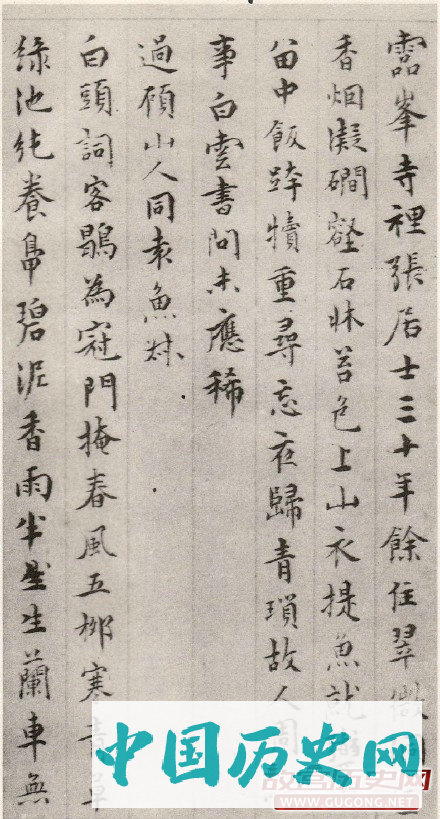 靈峯寺裡張居士三十年餘住翠微
香烟凝磵壑石牀苔色上山衣提魚就
中飯跨犢重尋忘夜歸青瑣故人同
事白雲書問未應稀
過顧山人同袁魚
白頭詞客鶡為冠門掩春風五柳寒草
綠池純養碧泥香雨半生蘭車無
中国历史网
WWW.GUGONG.NET